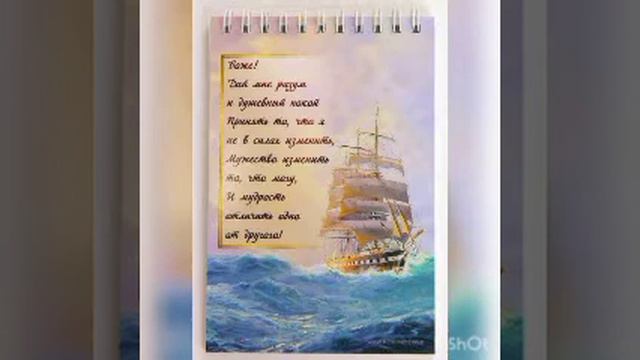 Боже!
Дай мне разум
и душевный покой
Принять то, что я
не в силах изменить,
Мужество изменить
то, что могу,
И мудрость
отличить одно
от другого!
shOt